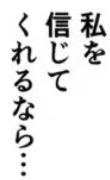 私を
信じて
くれるなら…